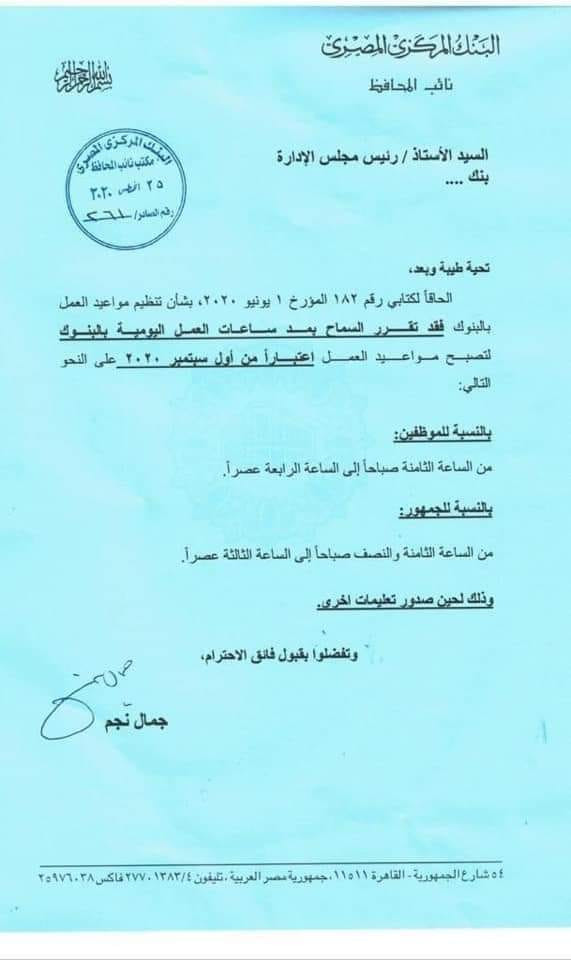 البنك المركزي المصري
نائب المحافظ
بسم الله الرحمن الرحيم
البنك المركزي المصري
مكتب نائب المحافظ
٢٥ اغسطس ٢٠٢٠
رقم الصادر/ ٢٦١
السيد الأستاذ / رئيس مجلس الإدارة
بنك ....
تحية طيبة وبعد،
الحاقاً لكتابي رقم ١٨٢ المؤرخ ١ يونيو ٢٠٢٠، بشأن تنظيم مواعيد العمل
بالبنوك فقد تقرر السماح بمد ساعات العمل اليومية بالبنوك
لتصبح مواعيد العمل اعتباراً من أول سبتمبر ٢٠٢٠ على النحو
التالي:
بالنسبة للموظفين:
من الساعة الثامنة صباحاً إلى الساعة الرابعة عصراً.
بالنسبة للجمهور:
من الساعة الثامنة والنصف صباحاً إلى الساعة الثالثة عصراً.
وذلك لحين صدور تعليمات اخرى.
وتفضلوا بقبول فائق الاحترام،
جمال نجم
٥٤ شارع الجمهورية - القاهرة ١١٥١١، جمهورية مصر العربية، تليفون ٢٧٧٠١٣٨٣/٤ فاكس ٢٥٩٧٦٠٣٨